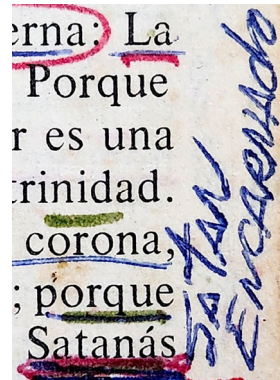 erna: La
Porque
r es una
trinidad.
corona,
; porque
Satanás
Satan
Encarnado